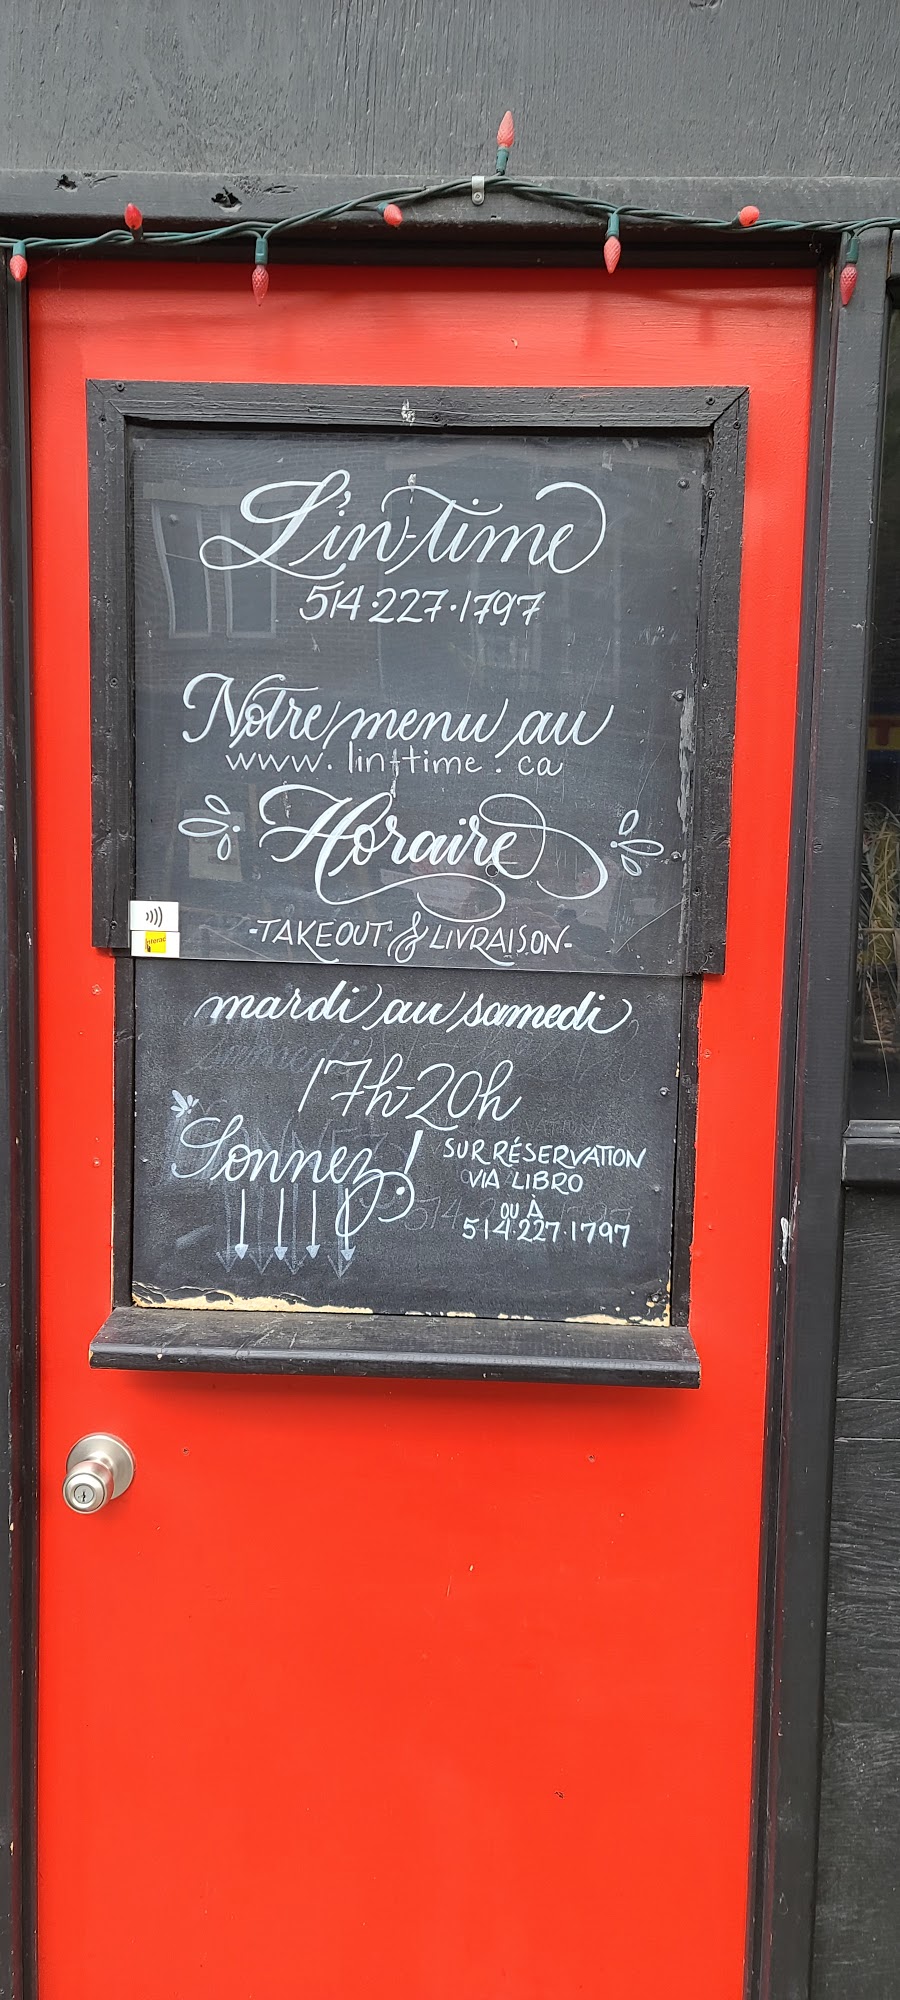 L'in-time
514·227·1797
Notre menu au
www.lin-time.ca
Horaire
-TAKEOUT & LIVRAISON-
Interac
mardi au samedi
17h-20h
Sonnez!
SUR RÉSERVATION
VIA LIBRO
OU À
514·227·1797